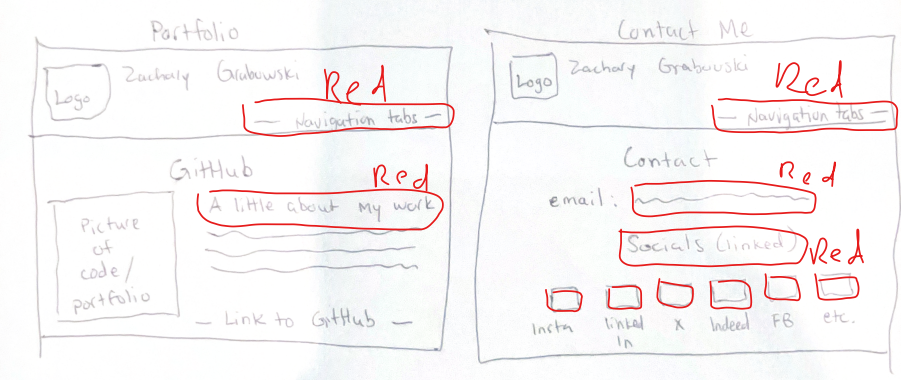 Portfolio
Logo
Zachary Grabowski
Red
— Navigation tabs —
GitHub
Red
Picture
of
code/
portfolio
A little about my work
— Link to GitHub —
Contact Me
Logo
Zachary Grabowski
Red
— Navigation tabs —
Contact
Red
email:
Socials (linked)
Red
Insta
linked
In
X
Indeed
FB
etc.